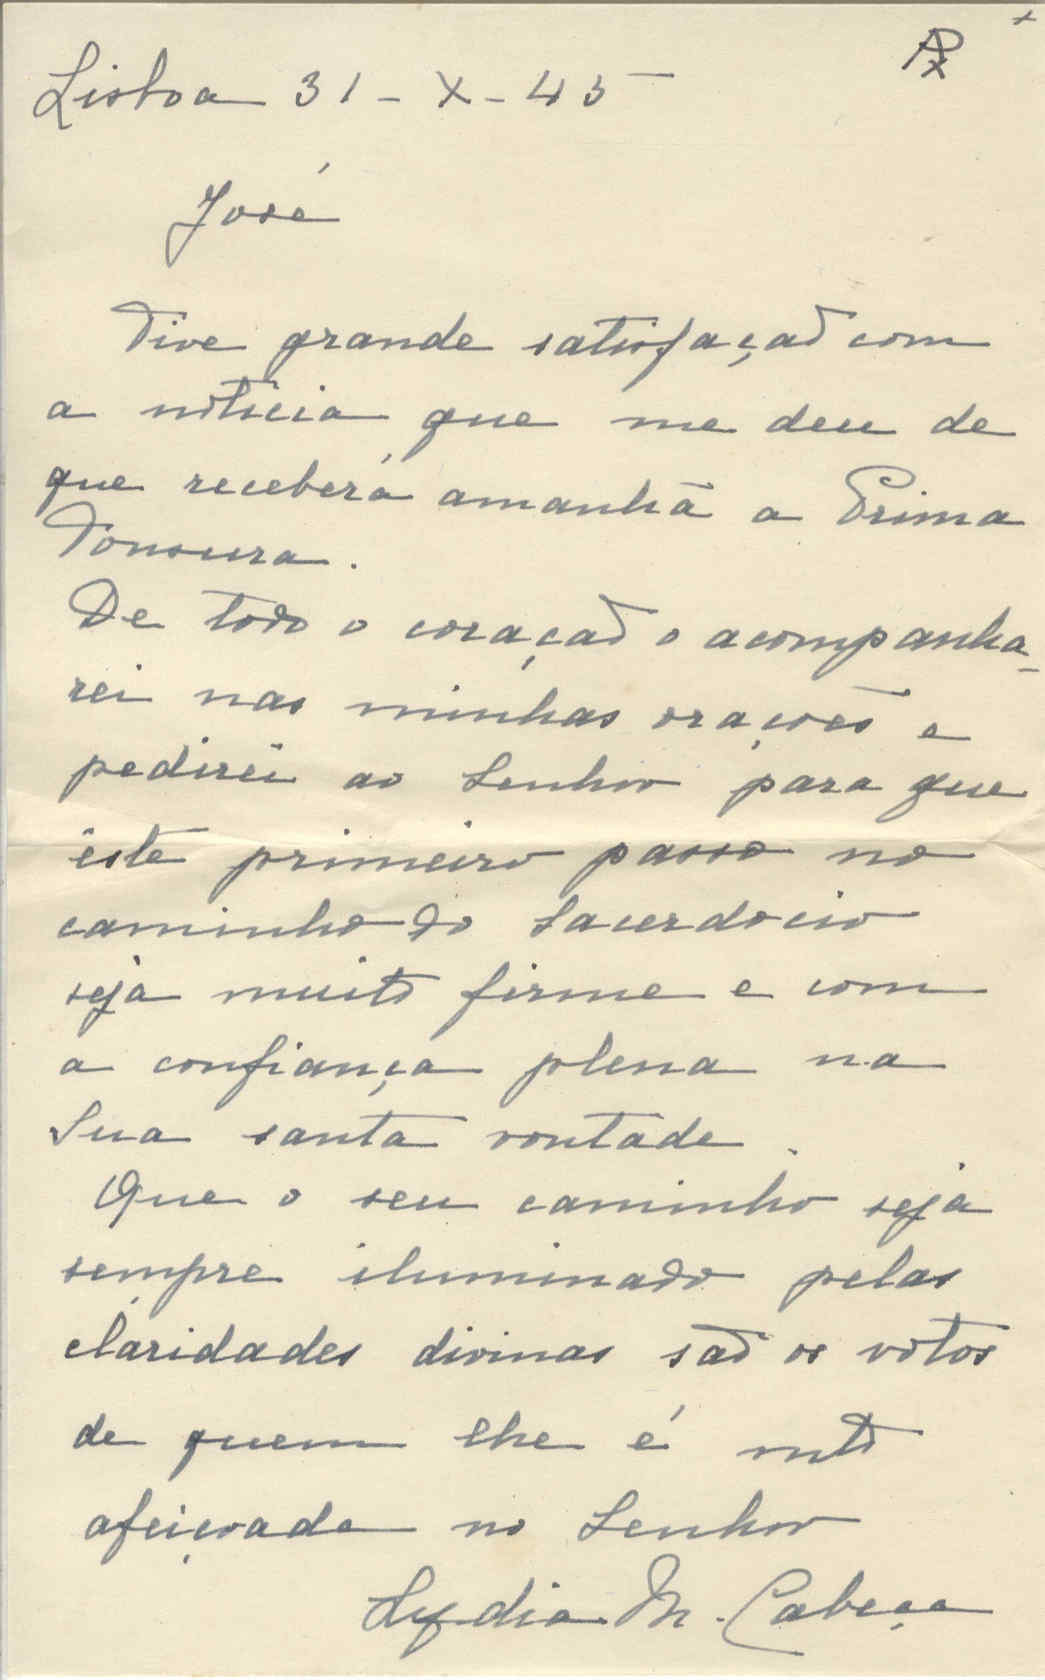 Lisboa 31-X-45
José
Tive grande satisfação com
a notícia que me deu de
que receberá amanhã a Prima
Tonsura.
De todo o coração o acompanha-
rei nas minhas orações e
pedirei ao Senhor para que
êste primeiro passo no
caminho do Sacerdocio
seja muito firme e com
a confiança plena na
Sua santa vontade.
Que o seu caminho seja
sempre iluminado pelas
claridades divinas são os votos
de quem lhe é mto
afeiçoada no Senhor
Lydia M. Cabeça